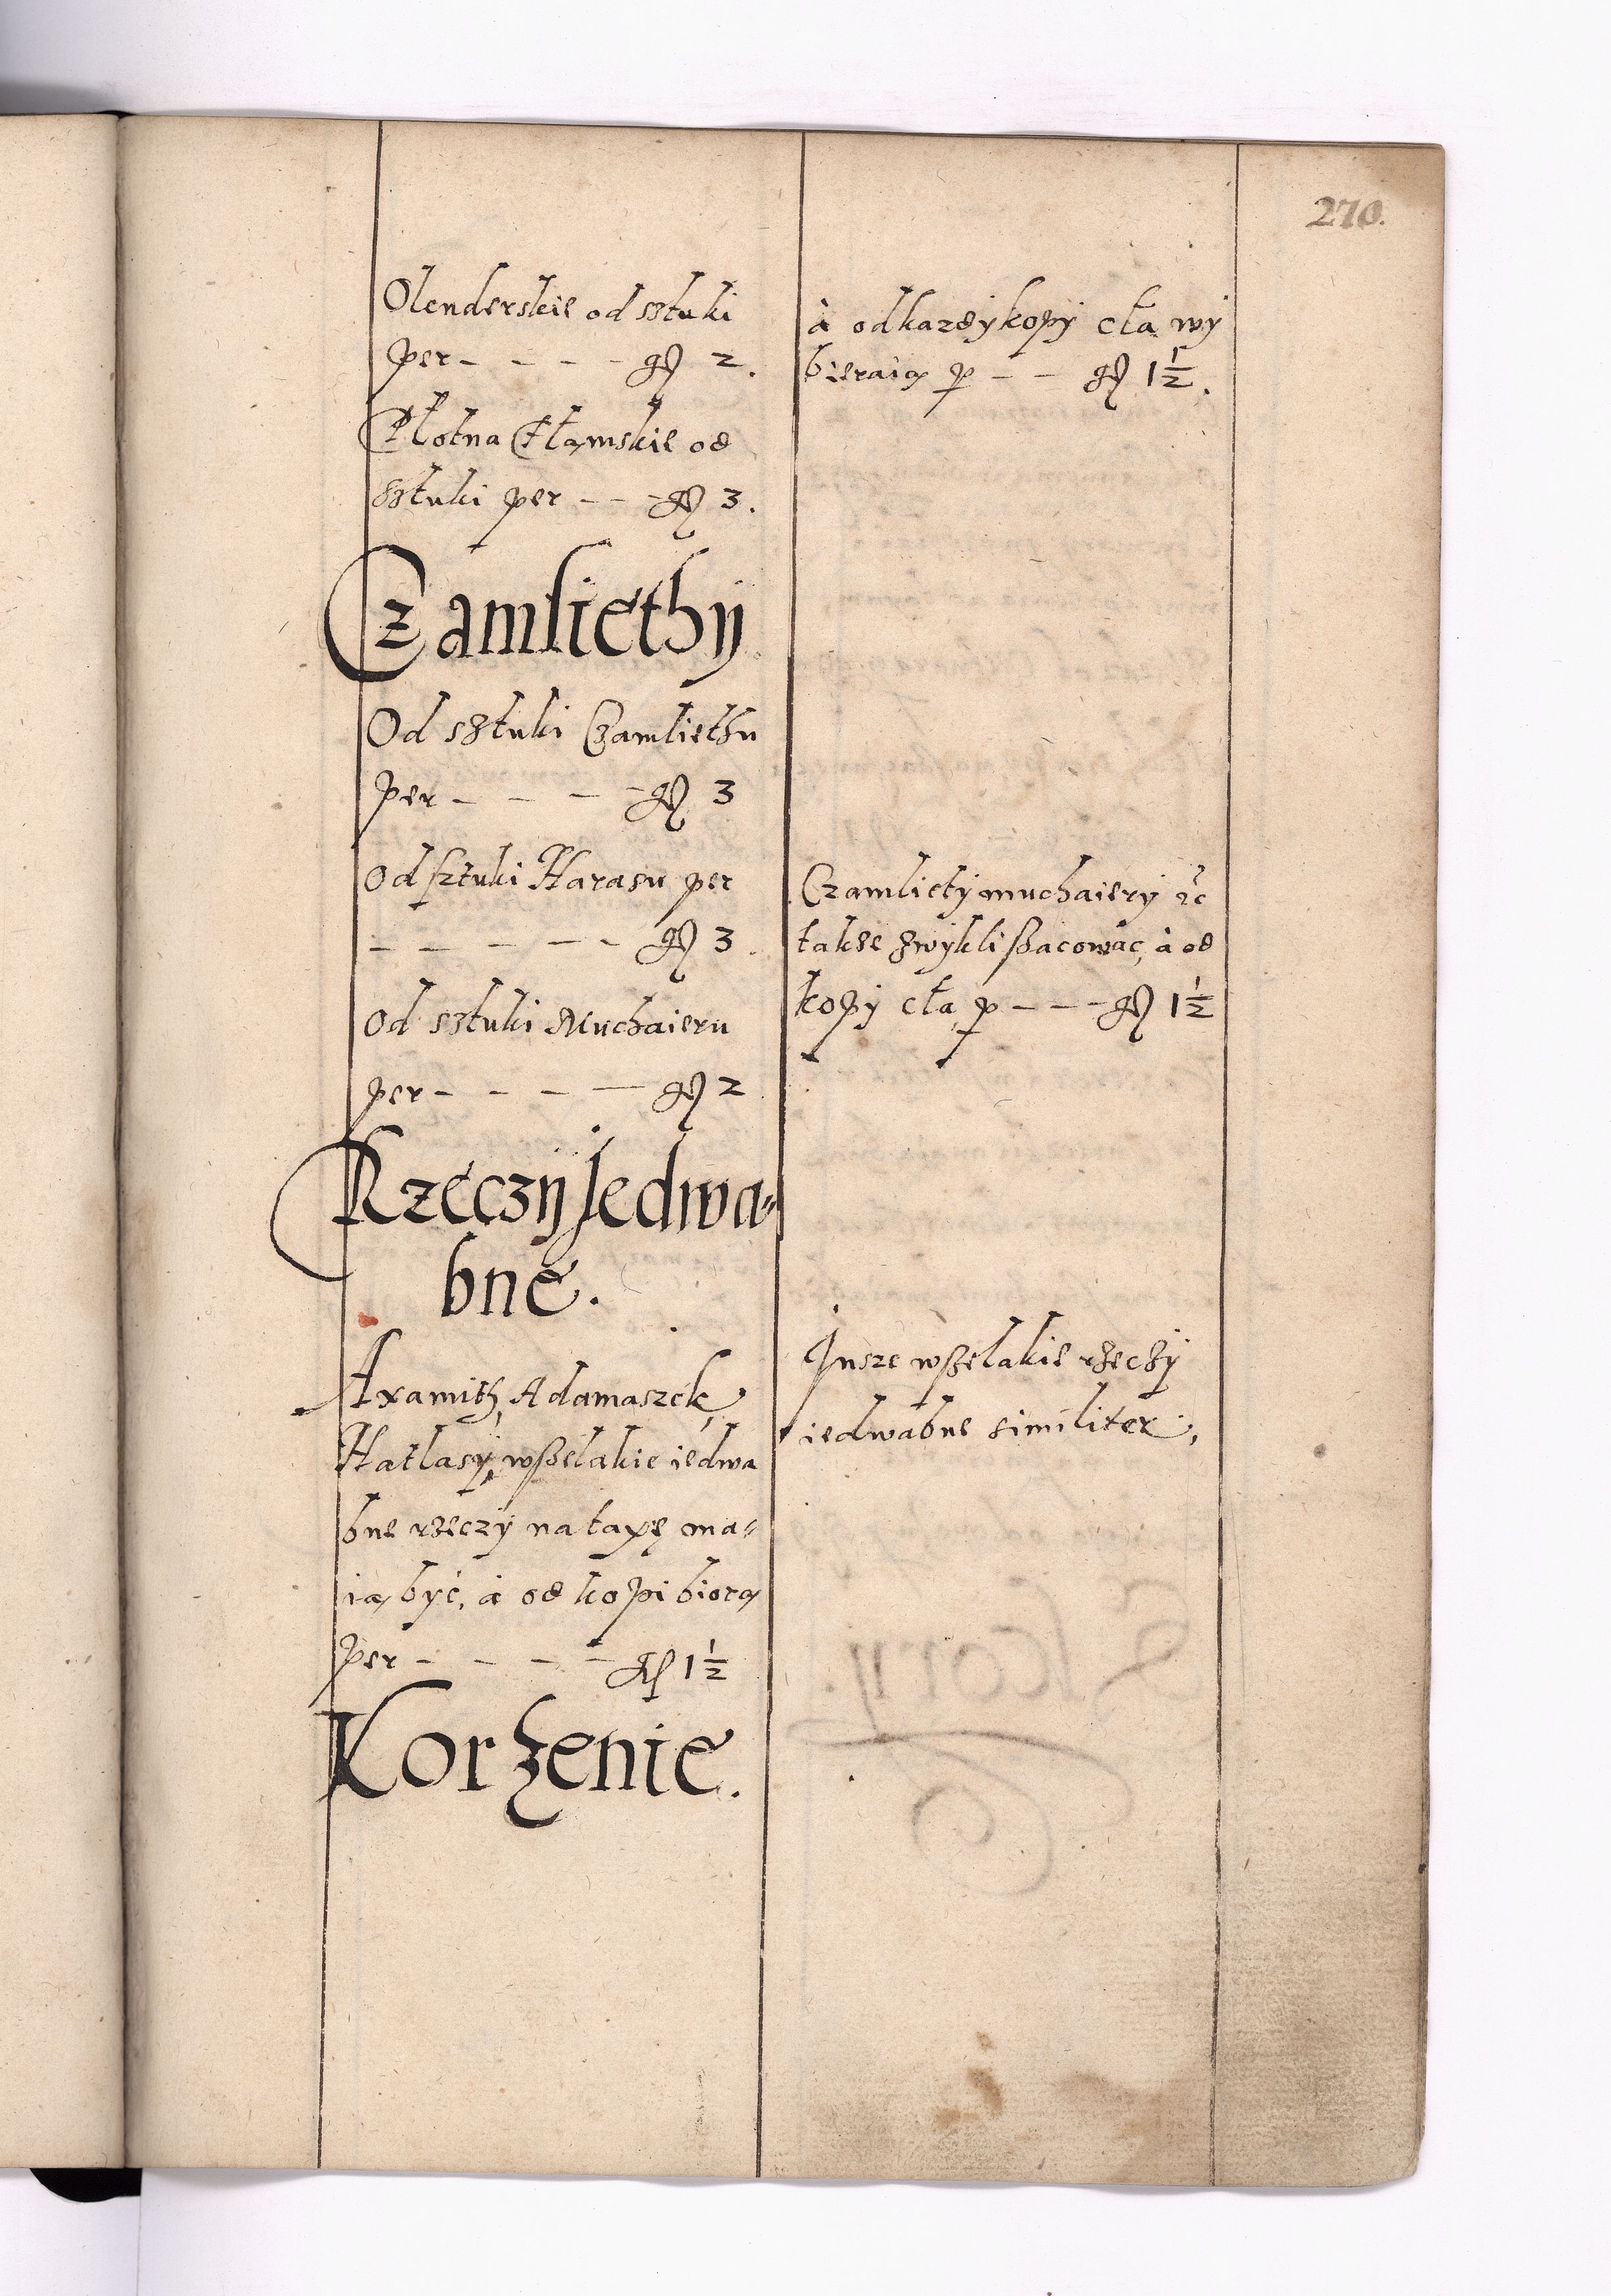 270.
Olenderskie od sztuki
per - - - - gr 2.
Płotna Flamskie od
sztuki per - - - gr 3.
Czamliethy
Od sztuki Czamliethu
per - - - - gr 3
Od sztuki Harasu per
- - - - - - gr 3.
Od sztuki Muchaieru
per - - - - gr 2
Rzeczy Jedwa-
bne.
Axamith, Adamaszek,
Hatlasy, wszelakie iedwa
bne rzeczy na taxę ma-
ią być, à od kopi biorą
per - - - - gr 1 1/2
Korzenie.
à od kazdy kopy cła wy
bieraią p - - gr 1 1/2.
Czamliety muchaiery etc
takze zwykli szacowac, à od
kopy cła p - - - gr 1 1/2
Insze wszelakie rzeczy
iedwabne similiter,